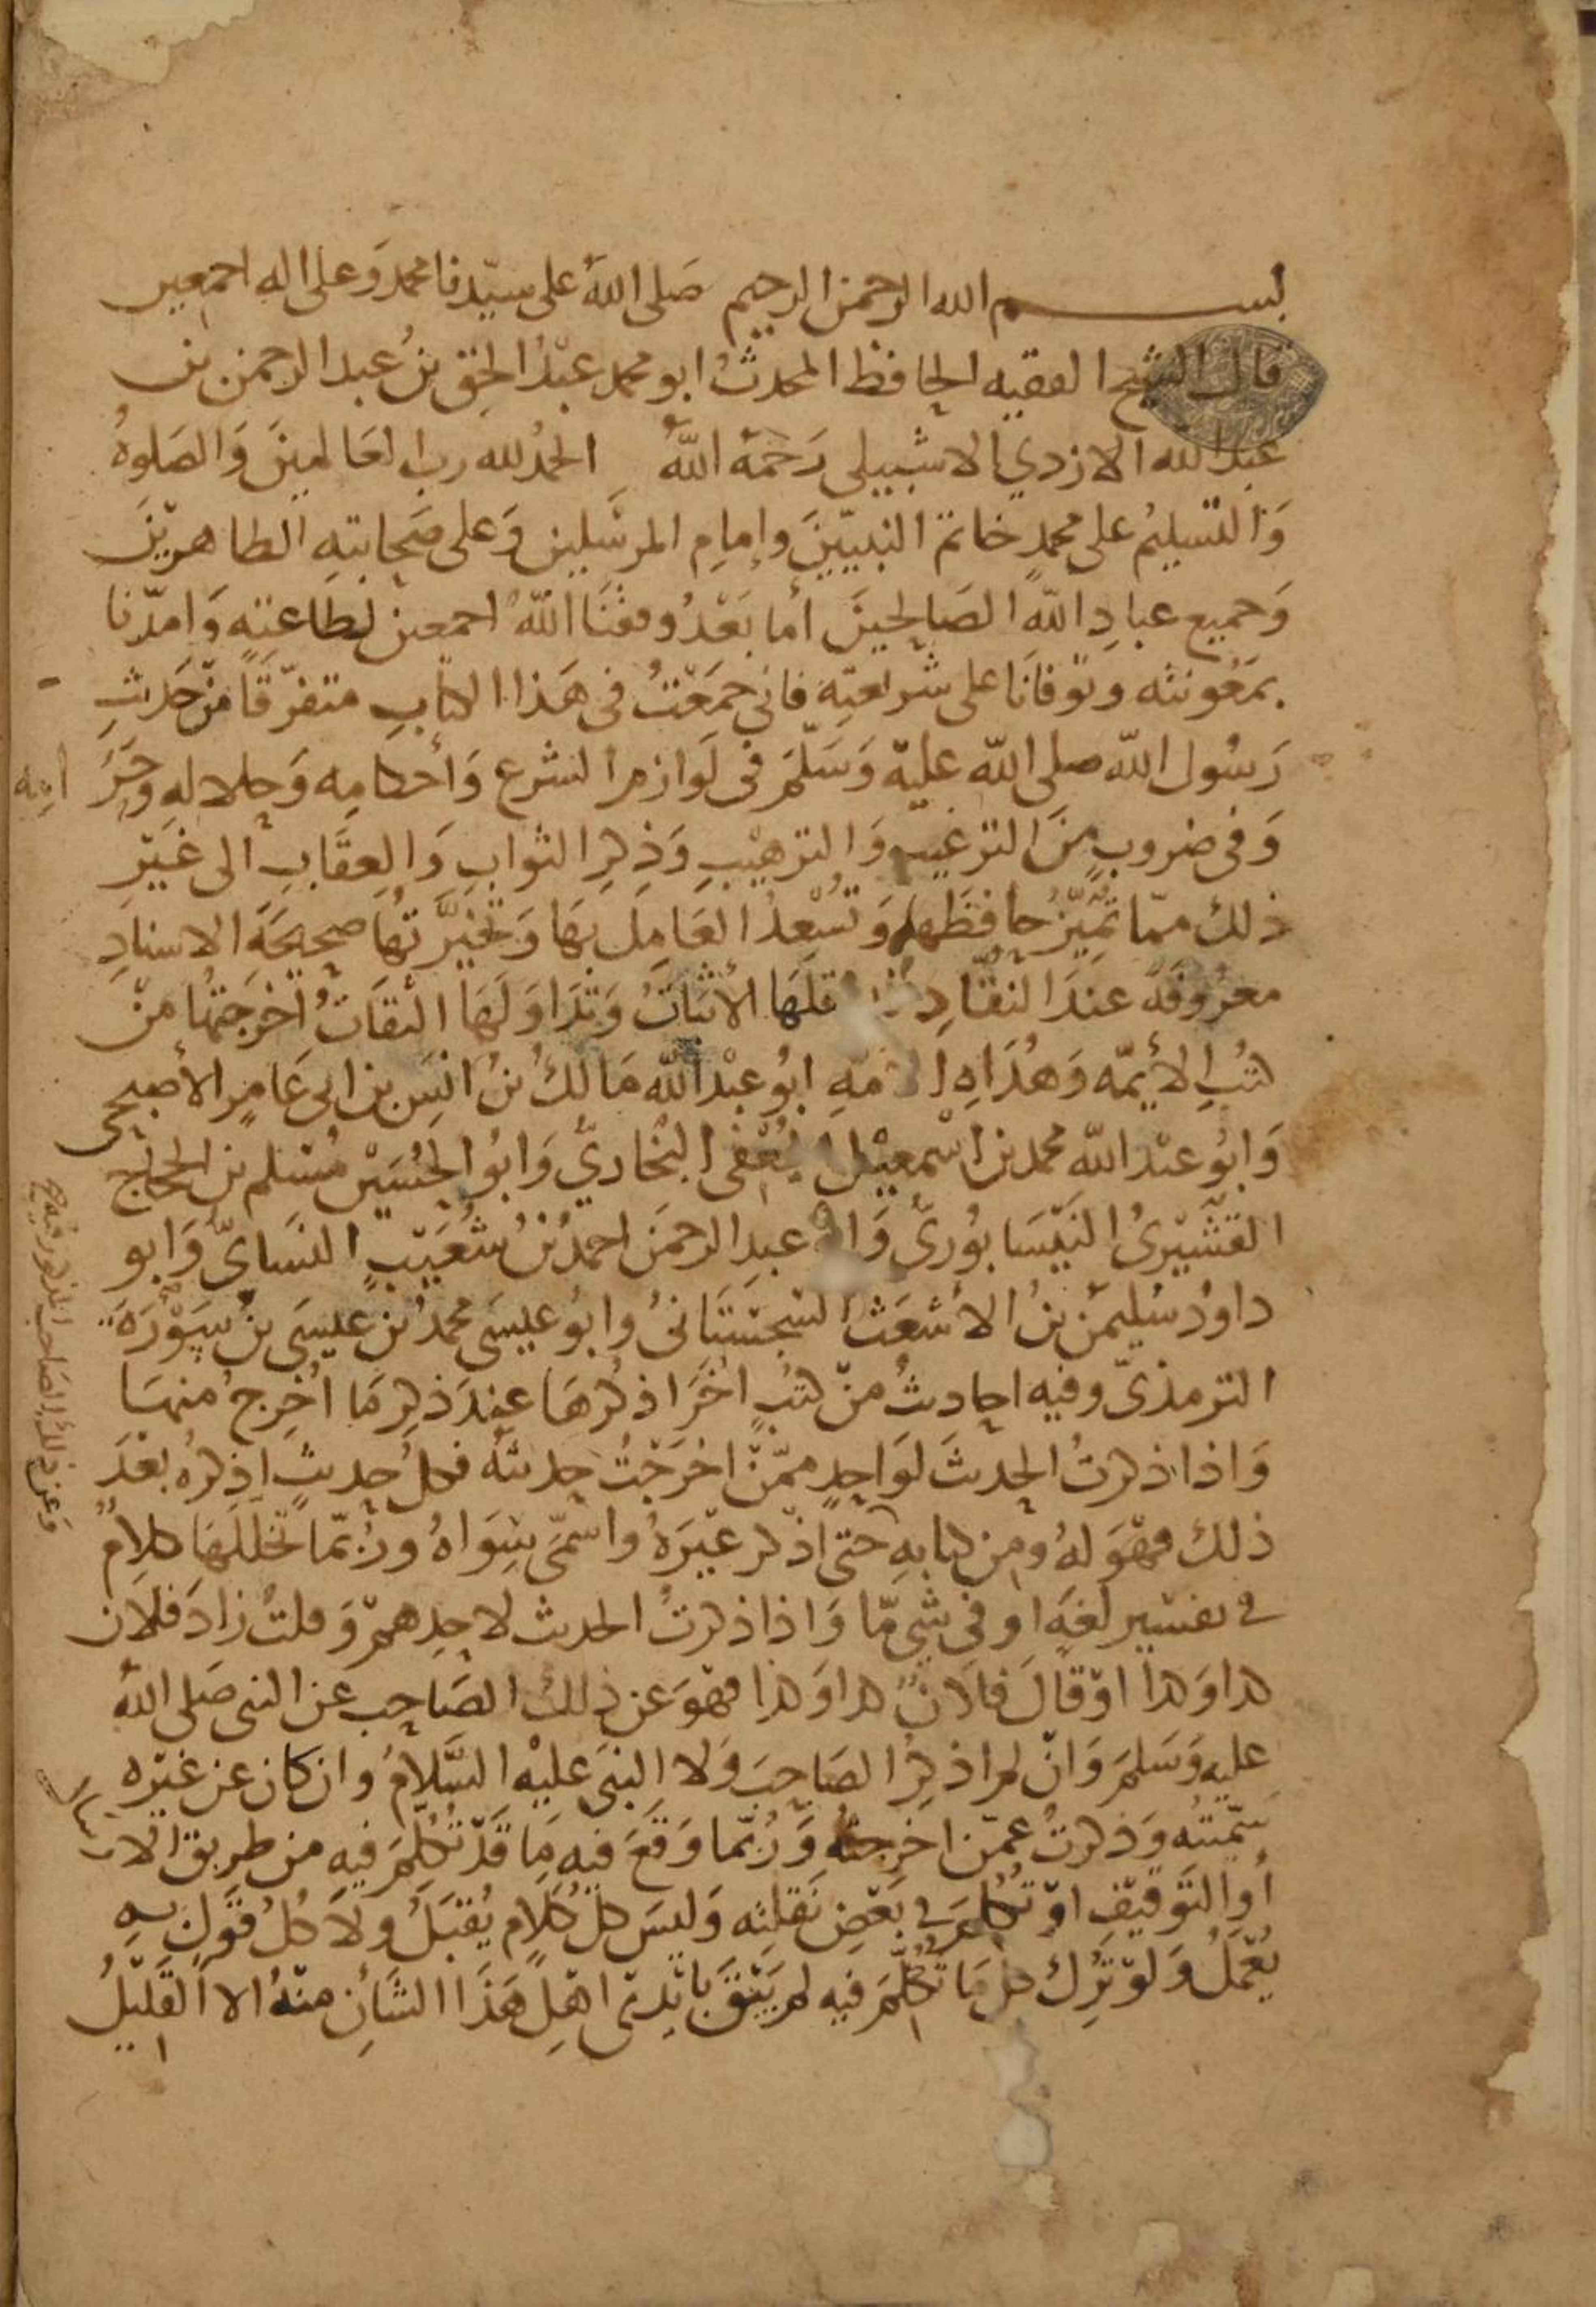 بسم الله الرحمن الرحيم صَلى اللهُ على سيّدنا محمد وَعلى اله اجمعين
قال الشيخ الفقيه الحافظ المحدثُ ابو محمد عبْدُ الحق بنُ عبد الرحمن بن
عبد الله الازدي الاشبيلى رَحمَهُ اللهُ الحمدُ لله رب العَالمينَ وَالصَلوةُ
وَالتسليمُ على محمدٍ خاتم النبيّينَ وإمامِ المرسَلين وَعلى صَحابتهِ الطاهريْنَ
وَجميع عبادِ اللهِ الصَالحينَ أما بَعْدُ وفقنَا اللهُ اجمعين لطاعتِهِ وَامدّنا
بمَعُونته وتوفانَا على شريعتِهِ فانى جمَعْتُ فى هَذا الكتابِ متفرّقًا منْ حَديثِ
رَسُول الله صلى الله عليْه وَسَلّمَ فى لَوازم الشرع وَأحكامِه وَحلالِهِ وحَرَ امِه
وَفى ضروبٍ منَ الترغيبِ وَالترهيْبِ وَذِكرِ الثوابِ وَالعِقَابِ الى غَيْرِ
ذلك ممّا تُمَيِّزُ حافظَها وَتُسْعِدُ العَامِلَ بهَا وَتخيَّرتهَا صحيْحَةَ الاسنادِ
معرُوفَةً عندَ النقّادِ قلَهَا الأثبَاتُ وَتدَاوَلَهَا الثقَاتُ اخرَجتهَا منْ
كتُبِ الأيمّه وَهُدَاهِ الامّهِ ابُو عبْد الله مَالكُ بنُ انَسِ بن ابى عَامرٍ الأصبحى
وَابُو عبْد الله محمد بن اسْمعيْل الجُعْفى البُخاريُّ وَابُو الحُسَيْن مُسْلم بن الحجّاج
القشَيْرىُ النَيْسَابُورىُّ وَابو عبدِ الرحمَن احمدُ بْنُ شُعَيْبٍ النسَاىُّ وَابو
داوُدُ سُليمَن بنُ الأشعَث السجسْتَانىُ وابُو عيسَى محمدُ بْن عيسَى بنُ سَوْرَةَ
الترمذىّ وفيه احاديثُ منْ كتُبٍ اخَرَ اذكرُهَا عندَ ذكرِ مَا اُخرِجُ منهَا
وَاذا ذكرتُ الحديثَ لوَاحِدٍ ممّنْ اخرَجْتُ حديثَهُ فكل حديثٍ اذكرُه بعْدَ
ذلك فهْوَ لهُ ومن كتابهِ حَتى اذكر غيْرَهُ واسَمّى سِوَاهُ ورُبّما تخللَهَا كلامٌ
فى تفسير لغَةٍ اوفى شىٍ مّا وَاذا ذكرتُ الحديث لاحدِهمْ وَقلتُ زادَ فلان
كذا وَكذا اوْ قالَ فلانٌ كذا وَكذا فهوَ عن ذلكَ الصَاحِبِ عن النبى صَلى اللهُ
عليه وَسَلمَ وَانْ لم اذكرِ الصَاحِبَ وَلا النبىَ عليْهِ السّلامُ وان كان عن غيْرِه
سَمّيتُه وَذكرتُ عمّن اخرجتُهُ وَرُبّما وَقعَ فيهِ مَا قدْ تُكلمَ فيهِ من طريق الارسَال
أو التَوقيْفِ اوْ تُكلمَ فى بَعْضِ نَقلِتِه وَليسَ كلُّ كلامٍ يُقبَلُ ولا كُلُّ قوَلٍ بهِ
يُعْملُ وَلوْ تُركَ كلُّ مَا تُكلّمَ فيه لم يَبْقَ بايْدِى اهْلِ هَذا الشأنِ منهُ الا القلِيْلُ
وَعن ذلك الصَاحب المذكور فيه